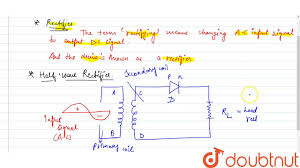 * Rectifier
* The term "rectifying" means changing A.C input signal
to output D.C signal.
And the device is known as a rectifier
* Half wave Rectifier
Secondary coil
P n
A C
D
Input
Signal
(A.C)
B D
RL = load
Primary coil
doubtnut